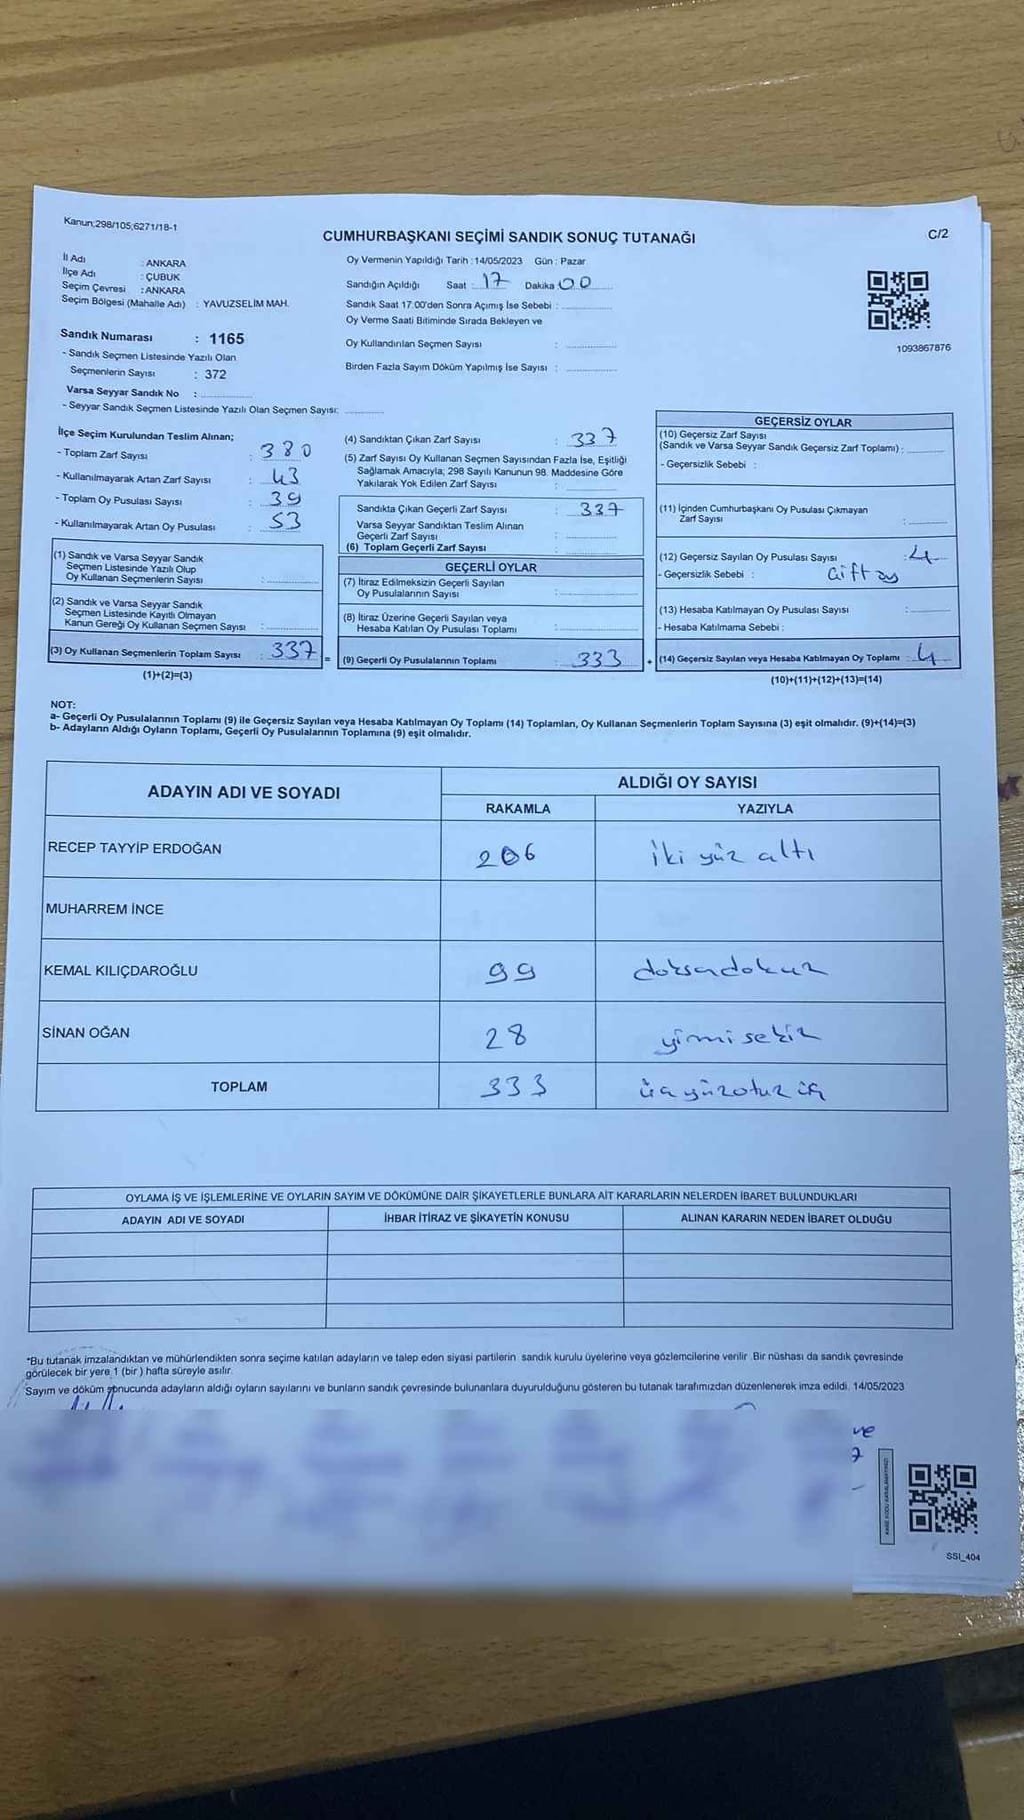 Kanun;298/105;6271/18-1
CUMHURBAŞKANI SEÇİMİ SANDIK SONUÇ TUTANAĞI
C/2
İl Adı : ANKARA
İlçe Adı : ÇUBUK
Seçim Çevresi : ANKARA
Seçim Bölgesi (Mahalle Adı) : YAVUZSELİM MAH.
Oy Vermenin Yapıldığı Tarih :14/05/2023 Gün : Pazar
Sandığın Açıldığı Saat : 17 Dakika 00
Sandık Saat 17.00'den Sonra Açımış İse Sebebi :
Oy Verme Saati Bitiminde Sırada Bekleyen ve
Oy Kullandırılan Seçmen Sayısı :
Birden Fazla Sayım Döküm Yapılmış İse Sayısı :
1093867876
Sandık Numarası : 1165
- Sandık Seçmen Listesinde Yazılı Olan
Seçmenlerin Sayısı : 372
Varsa Seyyar Sandık No :
- Seyyar Sandık Seçmen Listesinde Yazılı Olan Seçmen Sayısı:
İlçe Seçim Kurulundan Teslim Alınan;
- Toplam Zarf Sayısı : 380
- Kullanılmayarak Artan Zarf Sayısı : 43
- Toplam Oy Pusulası Sayısı : 39
- Kullanılmayarak Artan Oy Pusulası : 53
(1) Sandık ve Varsa Seyyar Sandık
Seçmen Listesinde Yazılı Olup
Oy Kullanan Seçmenlerin Sayısı :
(2) Sandık ve Varsa Seyyar Sandık
Seçmen Listesinde Kayıtlı Olmayan
Kanun Gereği Oy Kullanan Seçmen Sayısı :
(3) Oy Kullanan Seçmenlerin Toplam Sayısı : 337 =
(1)+(2)=(3)
(4) Sandıktan Çıkan Zarf Sayısı : 337
(5) Zarf Sayısı Oy Kullanan Seçmen Sayısından Fazla İse, Eşitliği
Sağlamak Amacıyla; 298 Sayılı Kanunun 98. Maddesine Göre
Yakılarak Yok Edilen Zarf Sayısı :
Sandıkta Çıkan Geçerli Zarf Sayısı : 337
Varsa Seyyar Sandıktan Teslim Alınan
Geçerli Zarf Sayısı :
(6) Toplam Geçerli Zarf Sayısı :
GEÇERLİ OYLAR
(7) İtiraz Edilmeksizin Geçerli Sayılan
Oy Pusulalarının Sayısı :
(8) İtiraz Üzerine Geçerli Sayılan veya
Hesaba Katılan Oy Pusulası Toplamı :
(9) Geçerli Oy Pusulalarının Toplamı : 333 +
GEÇERSİZ OYLAR
(10) Geçersiz Zarf Sayısı
(Sandık ve Varsa Seyyar Sandık Geçersiz Zarf Toplamı) :
- Geçersizlik Sebebi :
(11) İçinden Cumhurbaşkanı Oy Pusulası Çıkmayan
Zarf Sayısı :
(12) Geçersiz Sayılan Oy Pusulası Sayısı : 4
- Geçersizlik Sebebi : Çift oy
(13) Hesaba Katılmayan Oy Pusulası Sayısı :
- Hesaba Katılmama Sebebi :
(14) Geçersiz Sayılan veya Hesaba Katılmayan Oy Toplamı : 4
(10)+(11)+(12)+(13)=(14)
NOT:
a- Geçerli Oy Pusulalarının Toplamı (9) ile Geçersiz Sayılan veya Hesaba Katılmayan Oy Toplamı (14) Toplamları, Oy Kullanan Seçmenlerin Toplam Sayısına (3) eşit olmalıdır. (9)+(14)=(3)
b- Adayların Aldığı Oyların Toplamı, Geçerli Oy Pusulalarının Toplamına (9) eşit olmalıdır.
ADAYIN ADI VE SOYADI
ALDIĞI OY SAYISI
RAKAMLA YAZIYLA
RECEP TAYYİP ERDOĞAN 206 iki yüz altı
MUHARREM İNCE
KEMAL KILIÇDAROĞLU 99 doksandokuz
SİNAN OĞAN 28 yirmi sekiz
TOPLAM 333 üçyüzotuz üç
OYLAMA İŞ VE İŞLEMLERİNE VE OYLARIN SAYIM VE DÖKÜMÜNE DAİR ŞİKAYETLERLE BUNLARA AİT KARARLARIN NELERDEN İBARET BULUNDUKLARI
ADAYIN ADI VE SOYADI İHBAR İTİRAZ VE ŞİKAYETİN KONUSU ALINAN KARARIN NEDEN İBARET OLDUĞU
*Bu tutanak imzalandıktan ve mühürlendikten sonra seçime katılan adayların ve talep eden siyasi partilerin sandık kurulu üyelerine veya gözlemcilerine verilir .Bir nüshası da sandık çevresinde
görülecek bir yere 1 (bir ) hafta süreyle asılır.
Sayım ve döküm sonucunda adayların aldığı oyların sayılarını ve bunların sandık çevresinde bulunanlara duyurulduğunu gösteren bu tutanak tarafımızdan düzenlenerek imza edildi. 14/05/2023
SSİ_404